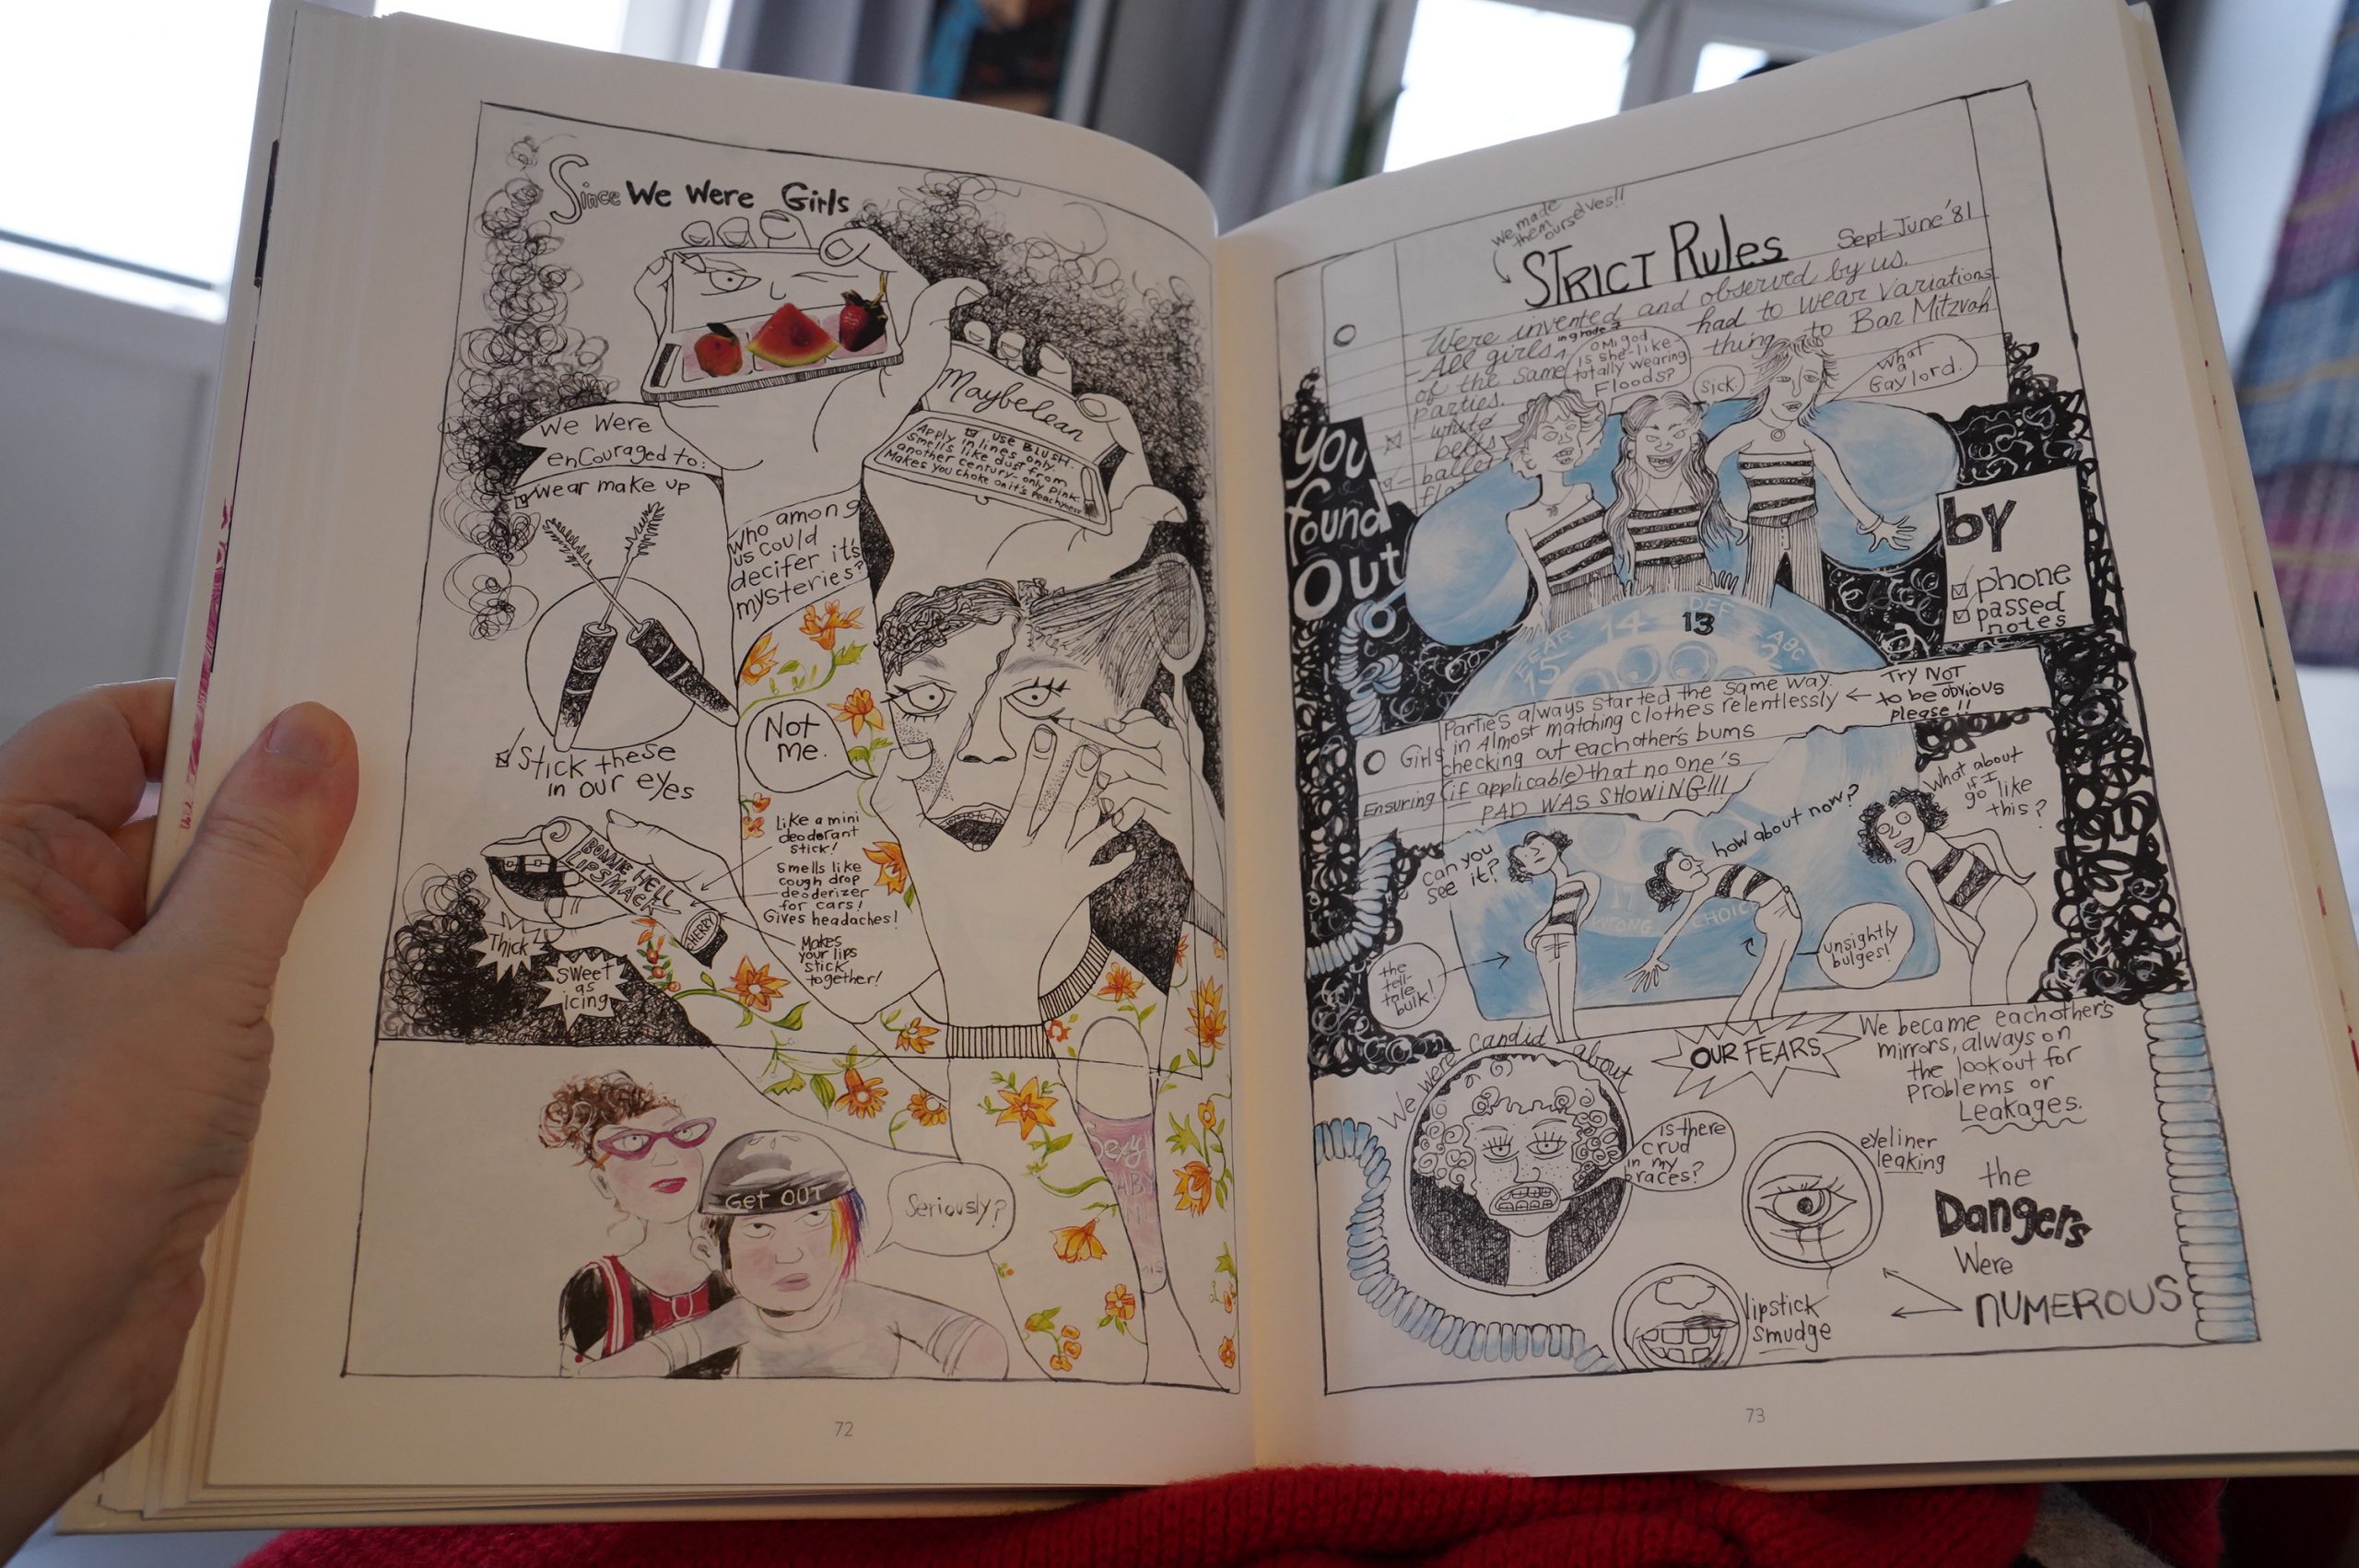 Since We Were Girls
We Were
enCouraged to:
wear make up
Stick these
in our eyes
Maybelean
use BLUSH.
Apply in lines only.
Smells like dust from
another century-only pink.
Makes you choke on it's peachyness
who among
us could
decifer it's
mysteries?
Not
me.
BONNE HELL
LIPSMACK
CHERRY
Like a mini
deodorant
stick!
Smells like
cough drop
deoderizer
for cars!
Gives headaches!
Makes
your lips
stick
together!
Thick
Sweet
as
icing
Get OUT
Seriously?
Sexy
72
We made
them ourselves!!
STRICT RULES
Sept-June '81
Were invented and observed by us.
- All girls in grade 7 had to wear variations
of the same thing to Bar Mitzvah
parties.
- white
belts
- ballet
flats
OMigod
is she-like-
totally wearing
Floods?
Sick.
What
a
Gaylord.
You
found
Out
by
phone
passed
notes
14
13
DEF
ABC
15
Parties always started the same way.
Girls in Almost matching clothes relentlessly
checking out eachother's bums
Ensuring (if applicable) that no one's
PAD WAS SHOWING!!!
Try NOT
to be obvious
please!!
Can you
see it?
how about now?
What about
if I
go like
this?
the
tell-
tale
bulk!
WRONG CHOICE
unsightly
bulges!
We were candid about
OUR FEARS
We became eachother's
mirrors, always on
the lookout for
problems or
Leakages.
is there
crud
in my
braces?
eyeliner
leaking
lipstick
smudge
the
Dangers
Were
NUMEROUS
73